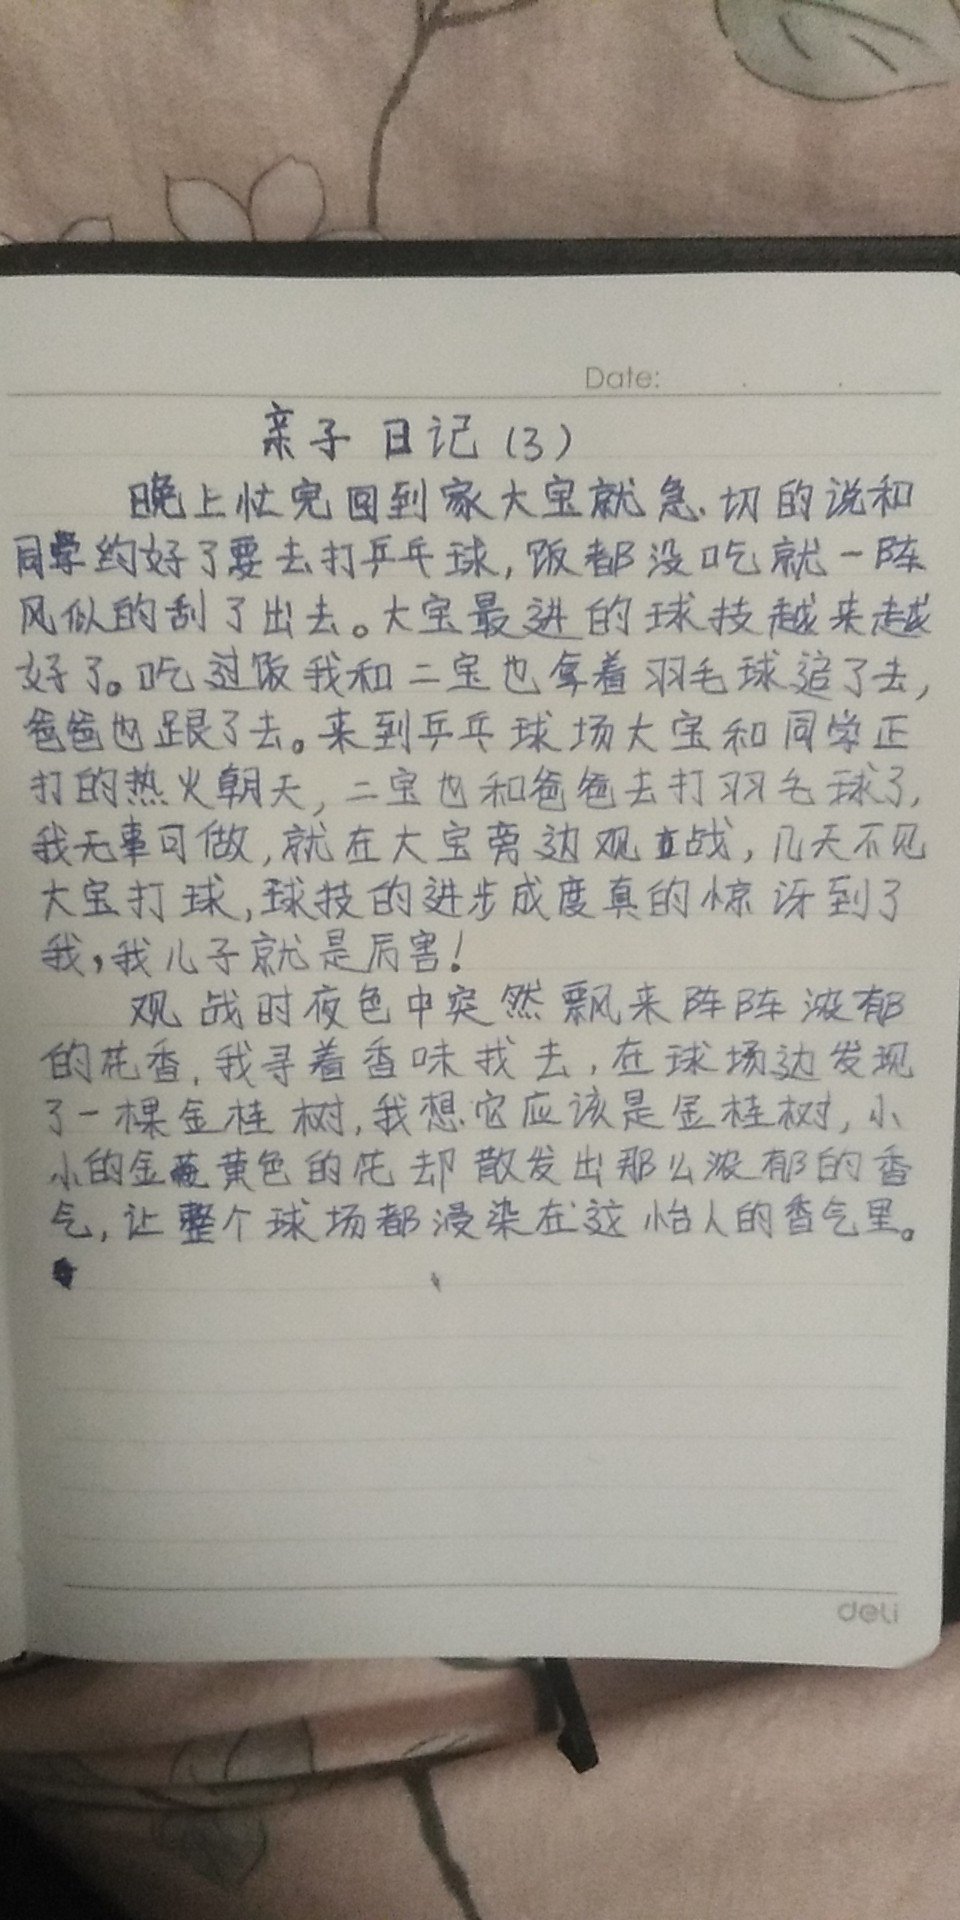 Date:
亲子日记(3)
晚上忙完回到家大宝就急切的说和
同学约好了要去打乒乓球,饭都没吃就一阵
风似的刮了出去。大宝最进的球技越来越
好了。吃过饭我和二宝也拿着羽毛球追了去,
爸爸也跟了去。来到乒乓球场大宝和同学正
打的热火朝天,二宝也和爸爸去打羽毛球了,
我无事可做,就在大宝旁边观战,几天不见
大宝打球,球技的进步成度真的惊讶到了
我,我儿子就是厉害!
观战时夜色中突然飘来阵阵浓郁
的花香,我寻着香味找去,在球场边发现
了一棵金桂树,我想它应该是金桂树,小
小的金黄色的花却散发出那么浓郁的香
气,让整个球场都浸染在这怡人的香气里。
deli